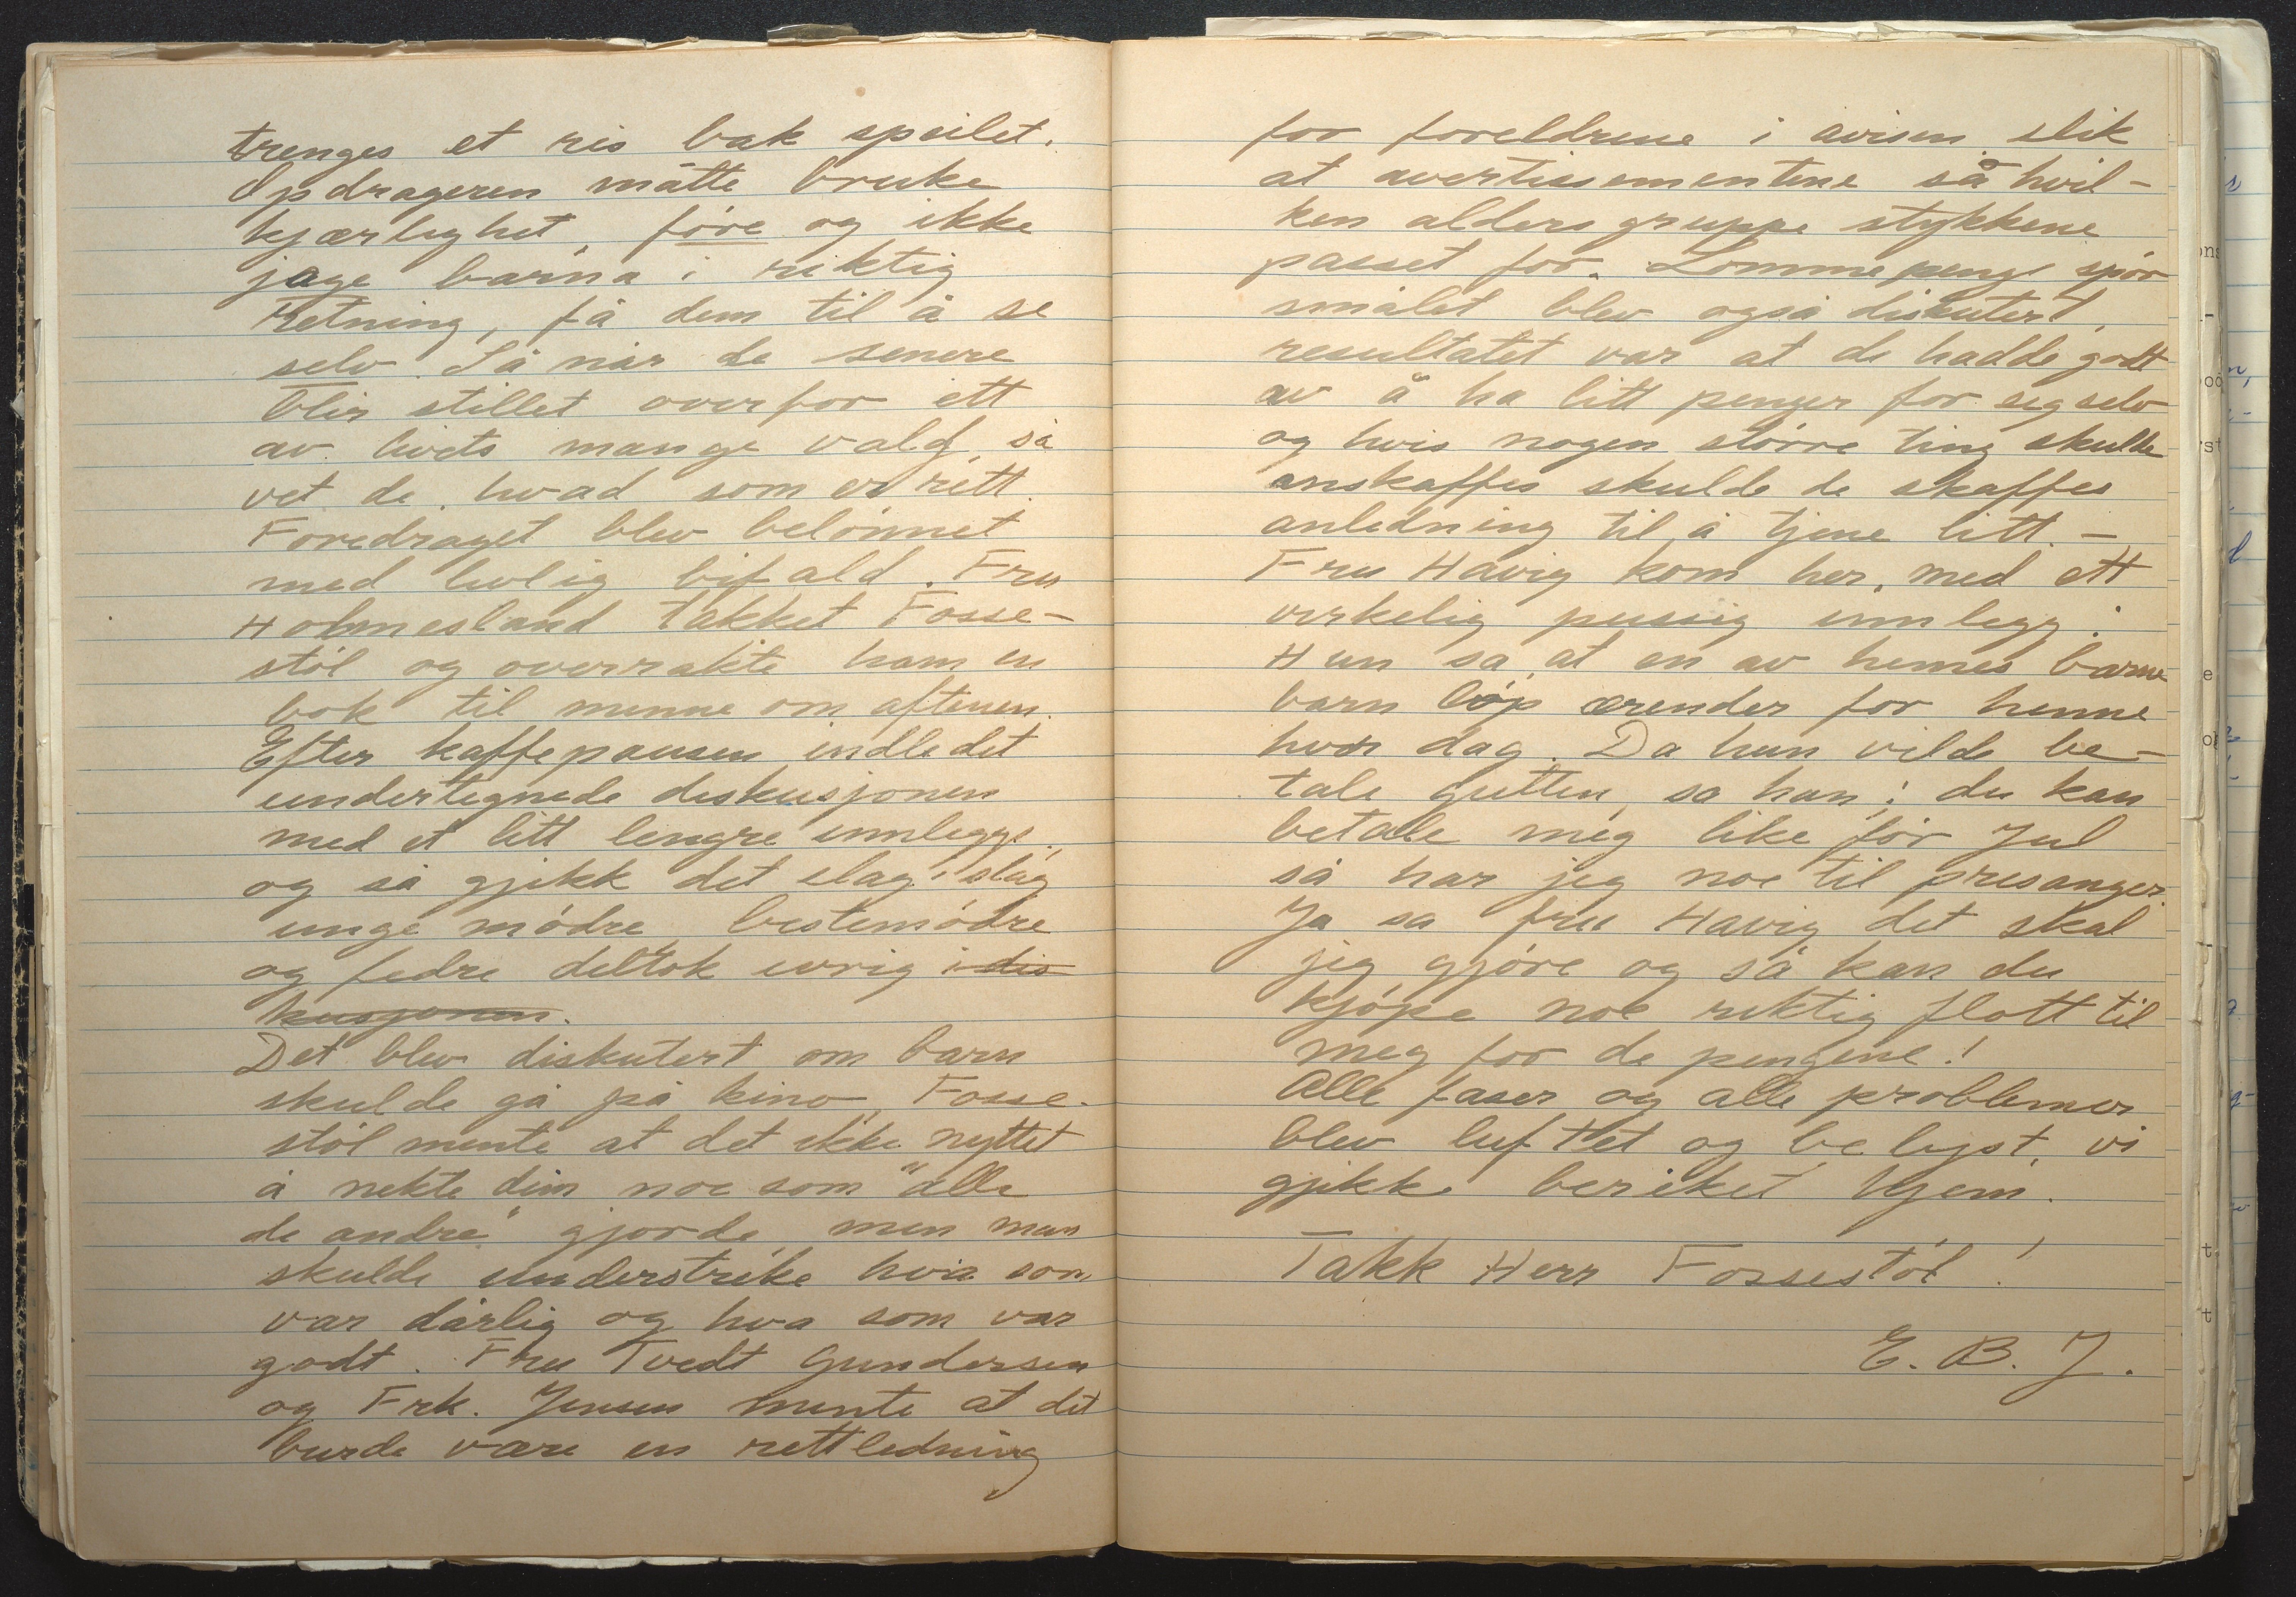 trenges et ris bak speilet.
Opdrageren måtte bruke
kjærlighet, føre og ikke
jage barna i riktig
retning, få dem til å se
selv. Så når de senere
blir stillet overfor ett
av livets mange valg, så
vet de hvad som er rett.
Foredraget blev belønnet
med livlig bifald. Fru
Holmesland takket Fosse-
støl og overrakte ham en
bok til minne om aftenen.
Efter kaffepausen indledet
undertegnede diskusjonen
med et litt lengre innlegg,
og så gjikk det slag i slag
unge mødre, bestemødre
og fedre deltok ivrig i dis
kusjonen.
Det blev diskutert om barn
skulde gå på kino, Fosse-
støl mente at det ikke nyttet
å nekte dem noe som "alle
de andre" gjorde men man
skulde understreke hva som
var dårlig og hva som var
godt. Fru Tvedt Gundersen
og Frk. Jensen mente at det
burde være en rettledning
for foreldrene i avisen slik
at avertissementene så hvil-
ken aldersgruppe stykkene
passet for. Lommepenge spør
smålet blev også diskutert,
resultatet var at de hadde godt
av å ha litt penger for seg selv
og hvis nogen større ting skulde
anskaffes skulde de skaffes
anledning til å tjene litt. -
Fru Havig kom her, med ett
virkelig pussig innlegg.
Hun sa at en av hennes barne
barn løp ærender for henne
hver dag. Da hun vilde be-
tale gutten, sa han: du kan
betale meg like før Jul
så har jeg noe til presanger.
Ja sa fru Havig det skal
jeg gjøre og så kan du
kjøpe noe riktig flott til
meg for de pengene!
Alle faser og alle problemer
blev luftet og belyst, vi
gjikk beriket hjem.
Takk Herr Fossestøl!
E. B. J.